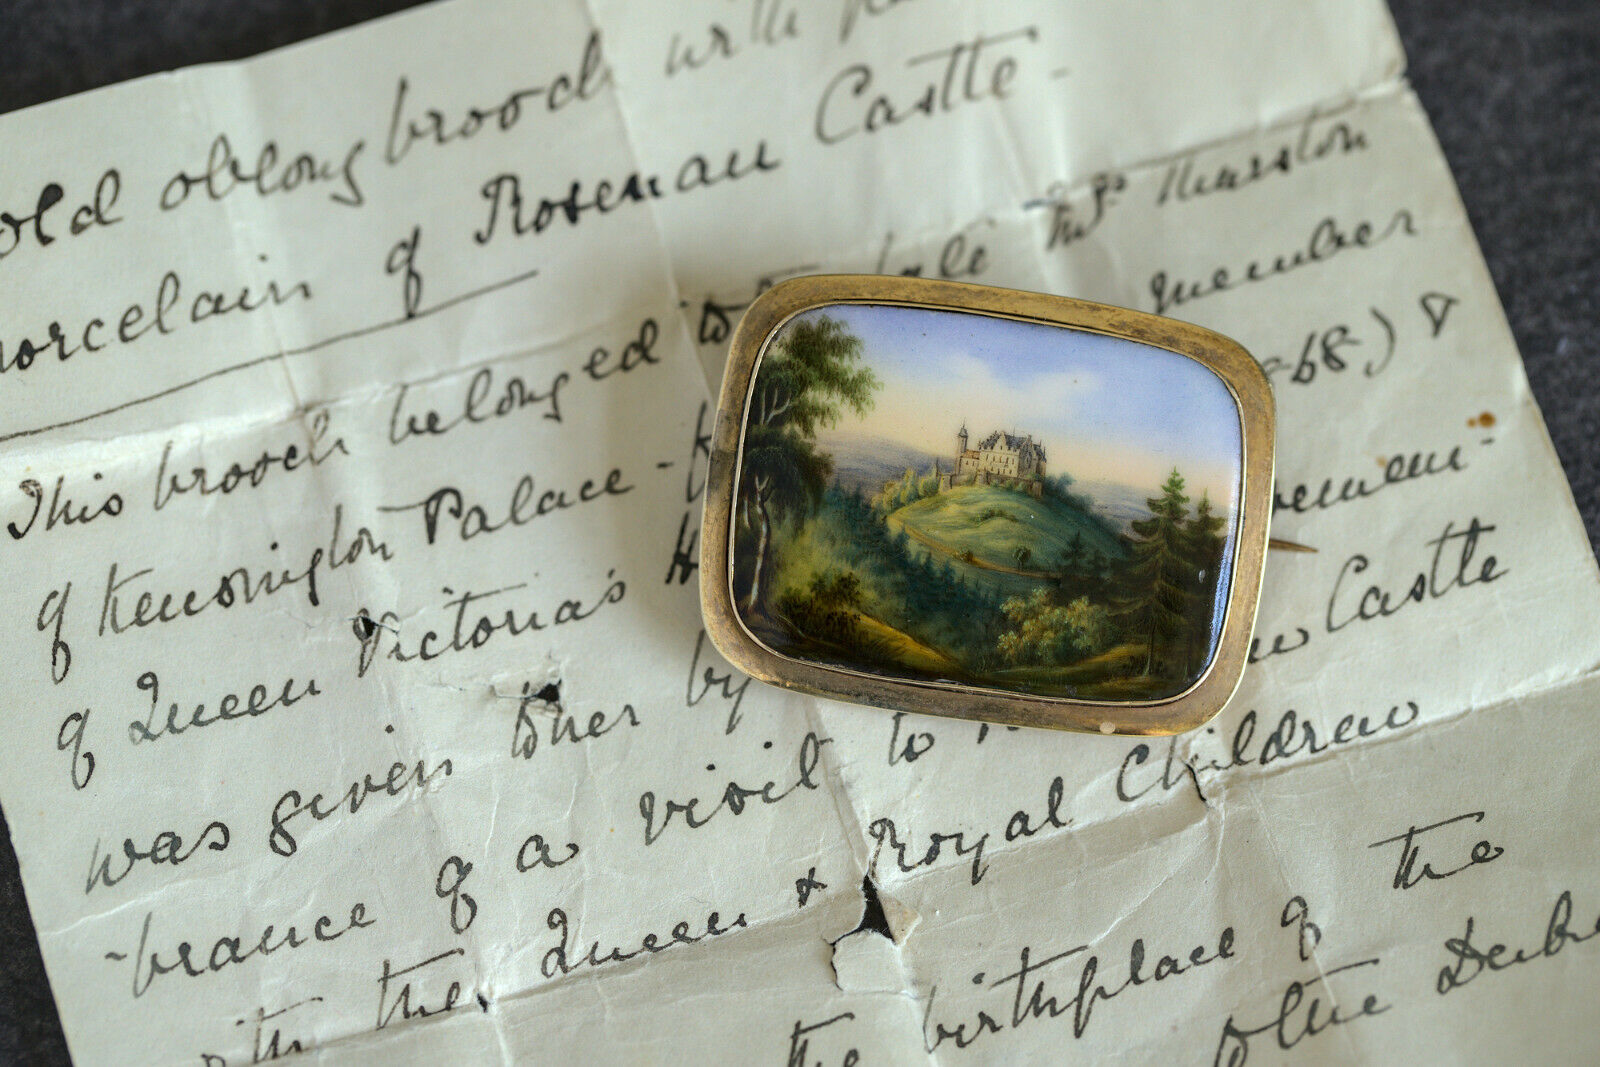 old oblong brooch with
porcelain of Rosenau Castle -
This brooch belonged to late Mrs Thurston
of Kensington Palace - member
of Queen Victoria's H -68) &
was given to her by
-brance of a visit to Castle
with the Queen & Royal Children
the birthplace of the